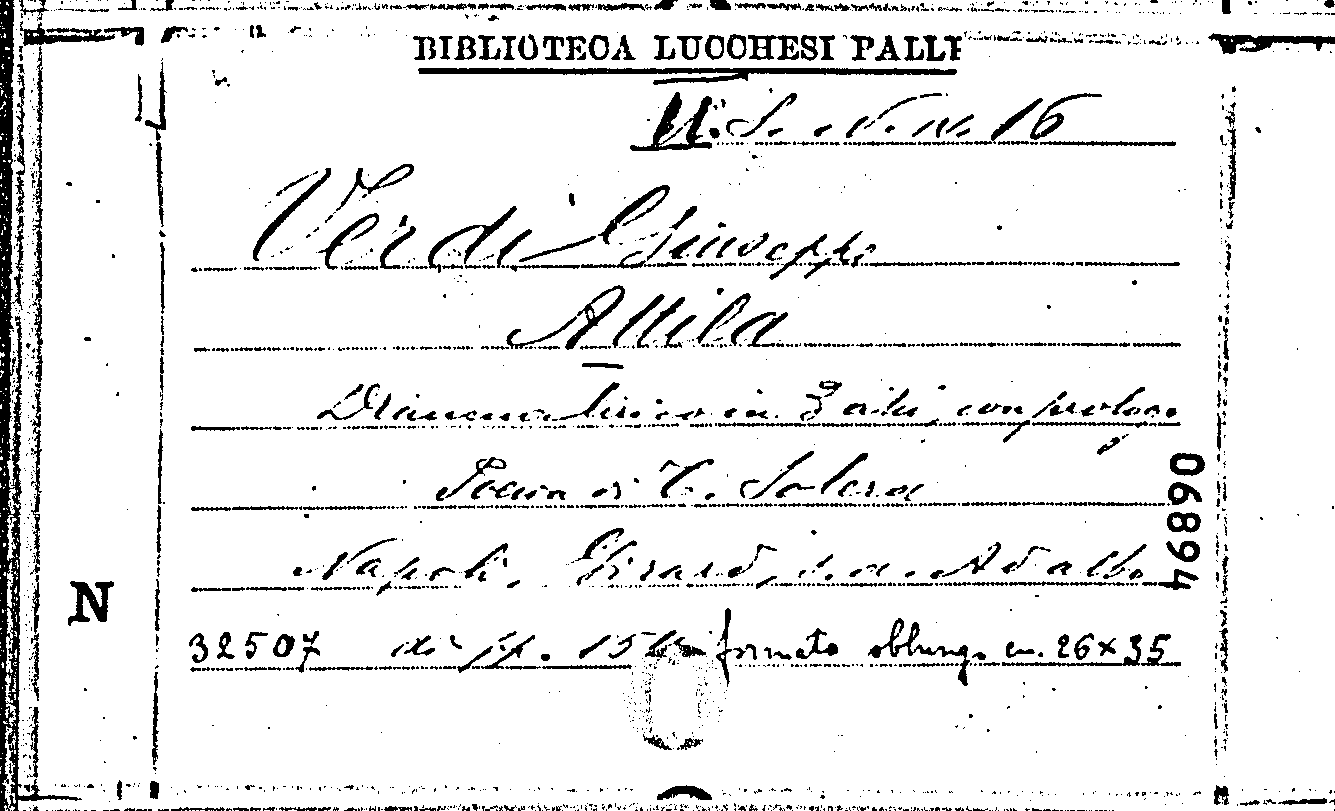 BIBLIOTECA LUCCHESI PALLI
16
Verdi Giuseppe
Attila
Dramma lirico in 3 atti, con prologo
Poesia di T. Solera
Napoli, Girard, s. a. Ad albo
32507 di pp. formato oblungo cm. 26x35
N
06894